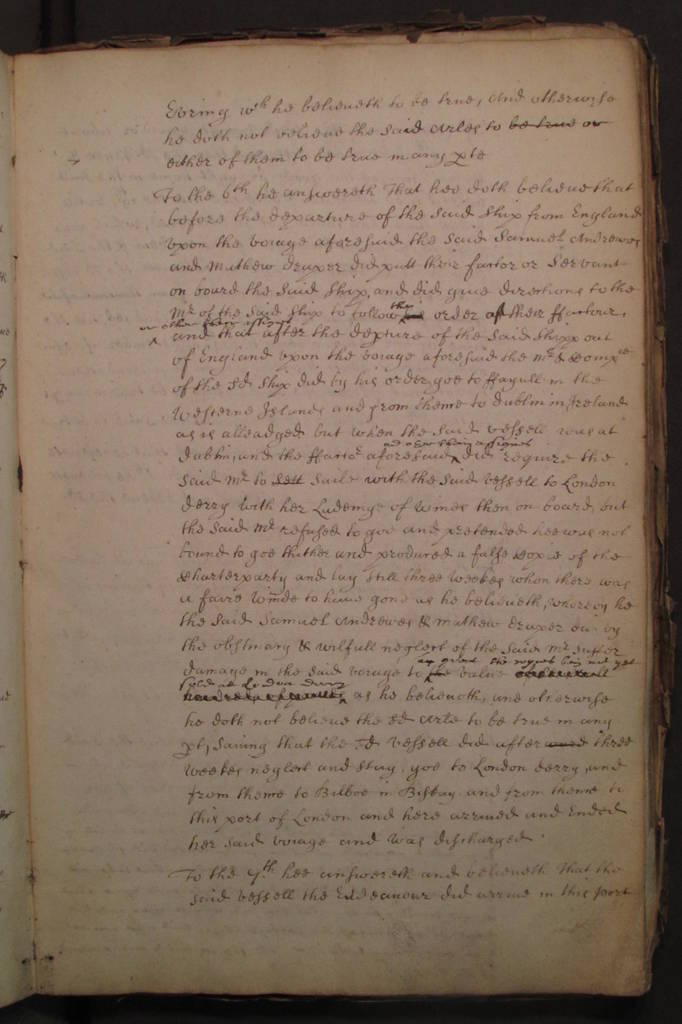 Esring wch he believeth to be true, And otherwise
he doth not believe the said Arles to be true or
either of them to be true in any pte
To the 6th he answereth That hee doth believe that
before the departure of the said ship from England
upon the voiage aforesaid the said Samuel Andrewes
and Mathew Draxer did putt their factor or Servant
on board the said ship, and did give directions to the
Mr of the said ship to follow the order of their ffactour,
or other their assignes
and that after the depture of the said shipp out
of England upon the voiage aforesaid the Mr &
of the sd ship did by his order goe to ffayall in the
Westerne Islands and from thence to Dublin in Ireland
as is alleadged but when the said vessell was at
and other their assignes
Dublin, and the ffactor aforesaid did require the
said Mr to sett saile with the said vessell to London
derry with her Ladeinge of wines then on board, but
the said Mr refused to goe and pretended hee was not
bound to goe thither and produced a false copie of the
Charterparty and lay still three weekes when there was
a faire winde to have gone as he believeth, whereby he
the said Samuel Andrewes & Mathew Draxer did by
the obstinacy & wilfull neglect of the said Mr suffer
damage in the said voiage to the value
sold at London Derry
as he believeth, and otherwise
he doth not believe the sd Arle to be true in any
pt, Saving that the sd vessell did after three
weekes neglect and stay, goe to London derry, and
from thence to Bilboe in Biskay and from thence to
this port of London and here arrived and Ended
her said voiage and was discharged
To the 7th hee answereth and believeth That the
said vessell the Endeavour did arrive in this port